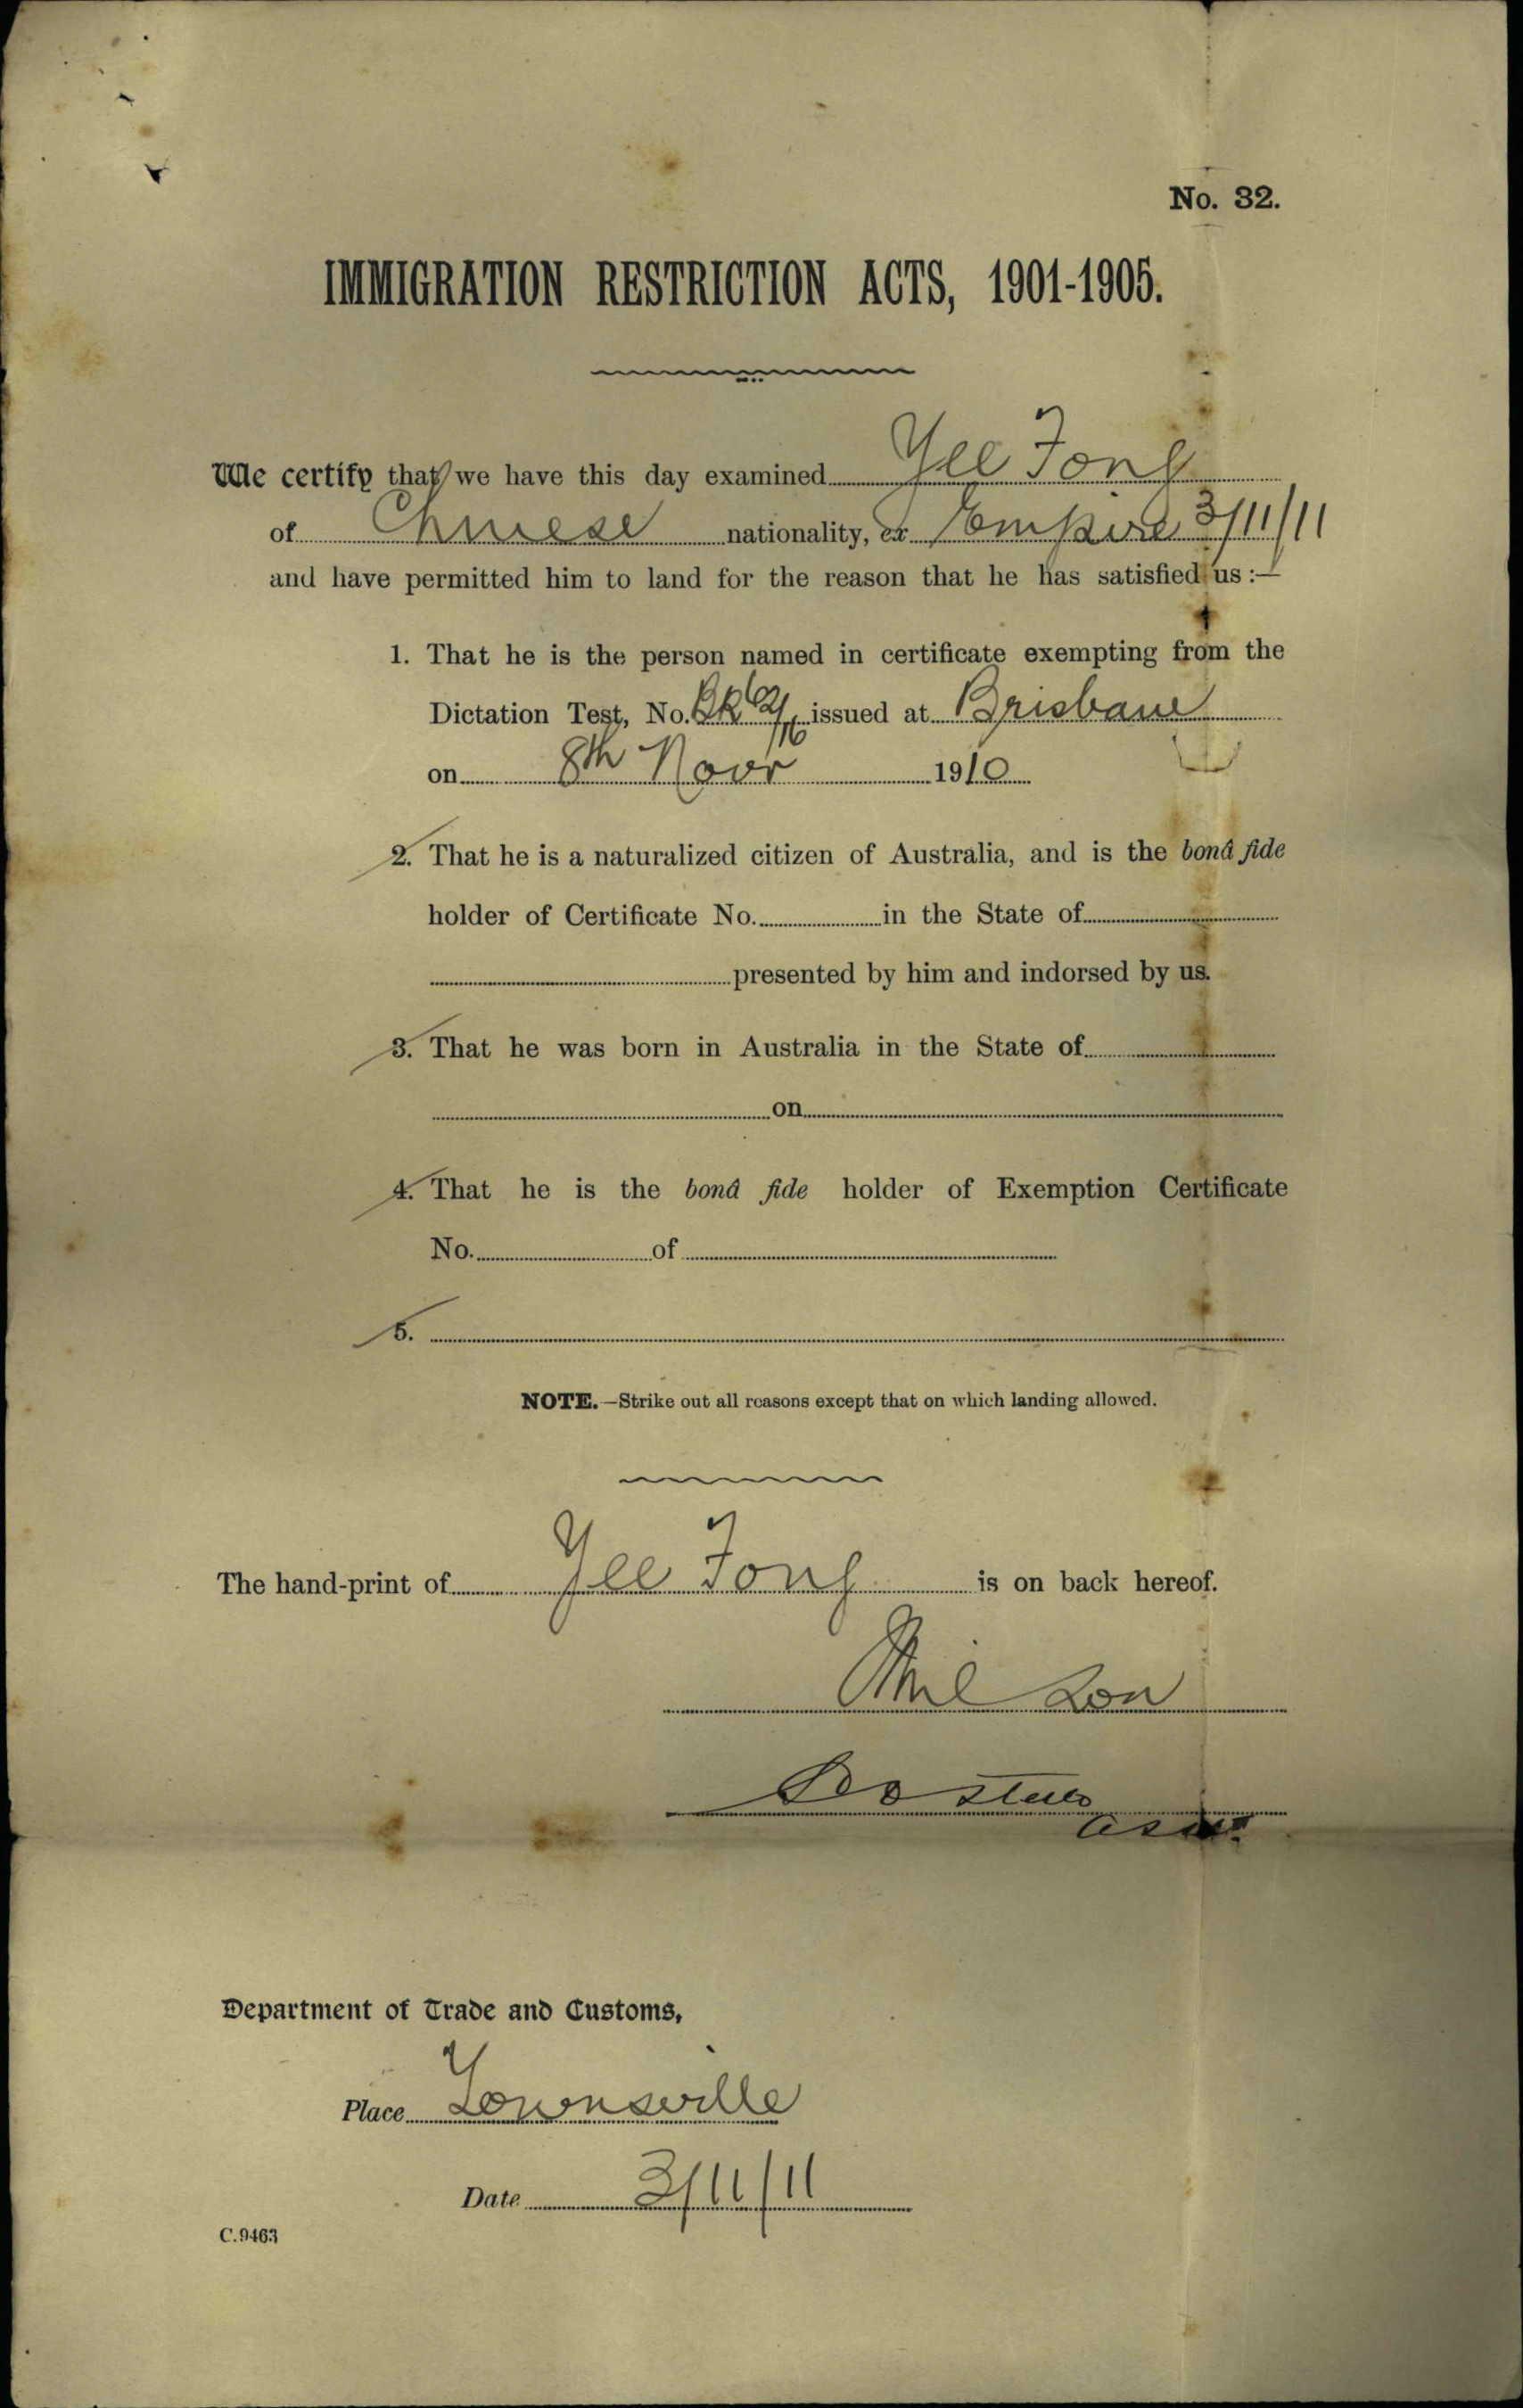 No. 32.
IMMIGRATION RESTRICTION ACTS, 1901-1905.
We certify that we have this day examined Yee Fong
of Chinese nationality, ex Empire 3/11/11
and have permitted him to land for the reason that he has satisfied us :—
1. That he is the person named in certificate exempting from the
Dictation Test, No. issued at Brisbane
on 8th Novr 1910
2. That he is a naturalized citizen of Australia, and is the bonâ fide
holder of Certificate No. in the State of
presented by him and indorsed by us.
3. That he was born in Australia in the State of
on
4. That he is the bonâ fide holder of Exemption Certificate
No. of
5.
NOTE.—Strike out all reasons except that on which landing allowed.
The hand-print of Yee Fong is on back hereof.
Department of Trade and Customs,
Place Townsville
Date 3/11/11
C.9463